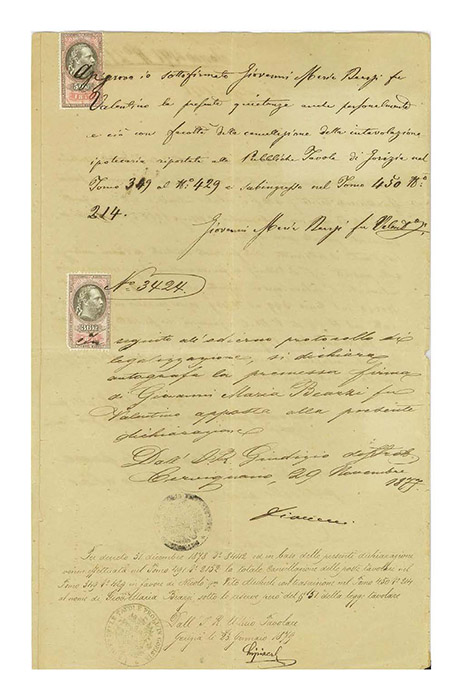 Approvo io sottofirmato Giovanni Maria Bearzi fu
Valentino la presente quietanza anche personalmente
e ciò con facoltà della cancellazione della intavolazione
ipotecaria riportata alle Pubbliche Tavole di Gorizia nel
Tomo 349 al Nº 429 e subingressa nel Tomo 450 Nº
214.
Giovanni Maria Bearzi fu Valentº
Nº 3424.
seguito all'odierno protocollo di
legalizzazione, si dichiara
autografa la premessa firma
di Giovanni Maria Bearzi fu
Valentino apposta alla presente
dichiarazione
Dall' I. R. Giudizio
Cervignano, 29 Novembre
1877
Per decreto 31 dicembre 1878 in base della presente dichiarazione
nel Tomo 491 Nº 2152 la totale Cancellazione delle poste tavolari nel
Tomo 349 Nº 429 in favore di nel Tomo 450 Nº 214
al nome di Giov. Maria Bearzi sotto le riserve però del § 51 della legge tavolare
Dall' I. R. Uffizio Tavolare
Gorizia li 13 Gennajo 1879